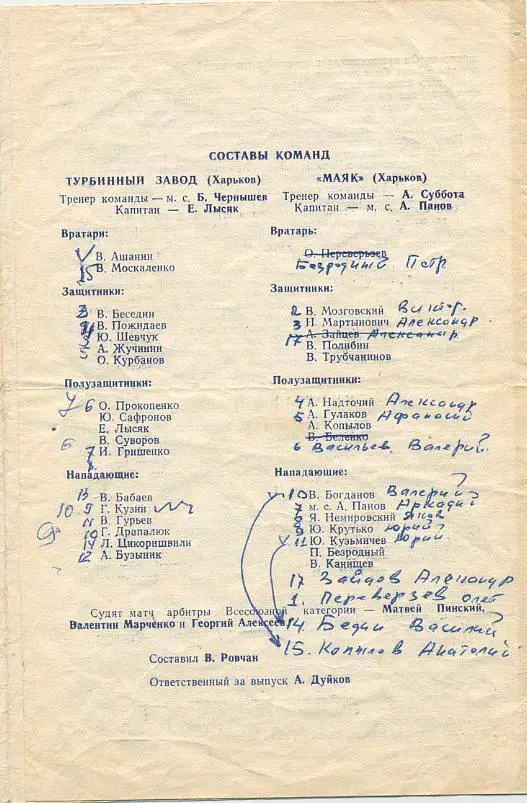 СОСТАВЫ КОМАНД
ТУРБИННЫЙ ЗАВОД (Харьков)
Тренер команды — м. с. Б. Чернышев
Капитан — Е. Лысяк
Вратари:
В. Ашанин
15 В. Москаленко
Защитники:
3 В. Беседин
В. Пожидаев
Ю. Шевчук
А. Жучинин
О. Курбанов
Полузащитники:
6 О. Прокопенко
Ю. Сафронов
Е. Лысяк
6 В. Суворов
7 И. Гришенко
8
Нападающие:
В. Бабаев
10 9 Г. Кузин
11 В. Гурьев
10 Г. Драпалюк
14 Л. Цикоришвили
12 А. Бузыник
«МАЯК» (Харьков)
Тренер команды — А. Суббота
Капитан — м. с. А. Панов
Вратарь:
О. Переверзев
Безродный Петр
Защитники:
2 В. Мозговский Виктор.
3 Н. Мартынович Александр
17 А. Зайцев Александр.
В. Полибин
В. Трубчанинов
Полузащитники:
4 А. Надточий Александр
5 А. Гулаков Афанасий
А. Копылов
Б. Беленко
6 Васильев Валерий.
Нападающие:
10 В. Богданов Валерий?
7 м. с. А. Панов Аркадий
9 Я. Немировский Яков
8 Ю. Крутько Юрий?
11 Ю. Кузьмичев Юрий
П. Безродный
В. Канищев
17 Зайцов Александр
1. Переверзев Олег
Судят матч арбитры Всесоюзной категории — Матвей Пинский,
Валентин Марченко и Георгий Алексеев
14. Бедин Василий
15. Копылов Анатолий
Составил В. Ровчан
Ответственный за выпуск А. Дуйков